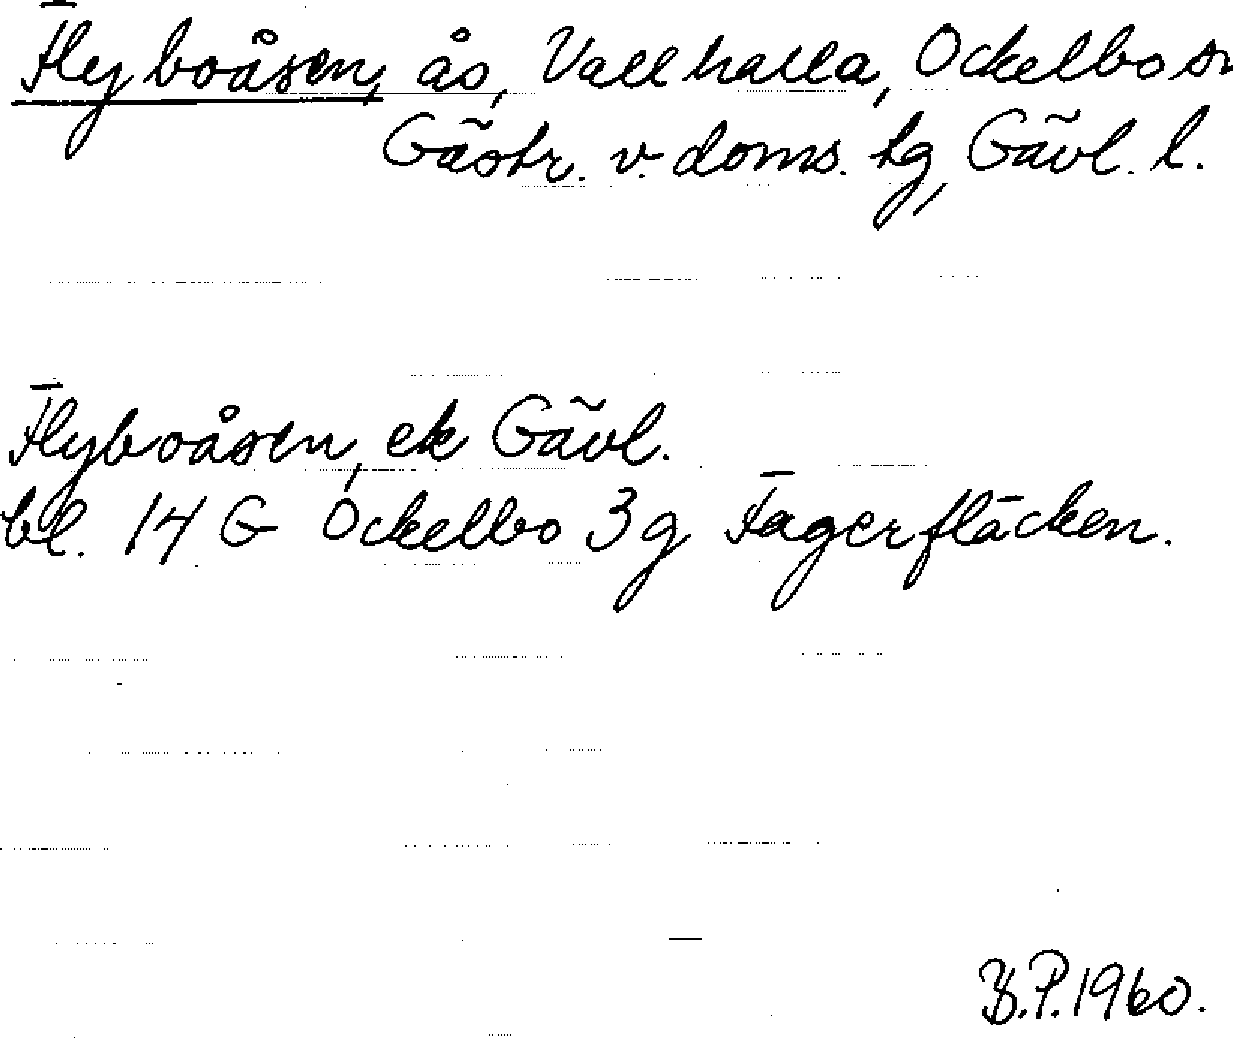 Flyboåsen, ås, Vallhalla, Ockelbo sn
Gästr. v. doms. tg, Gävl. l.
Flyboåsen, ek Gävl.
bl. 14 G Ockelbo 3g Fagerfläcken.
B.P. 1960.